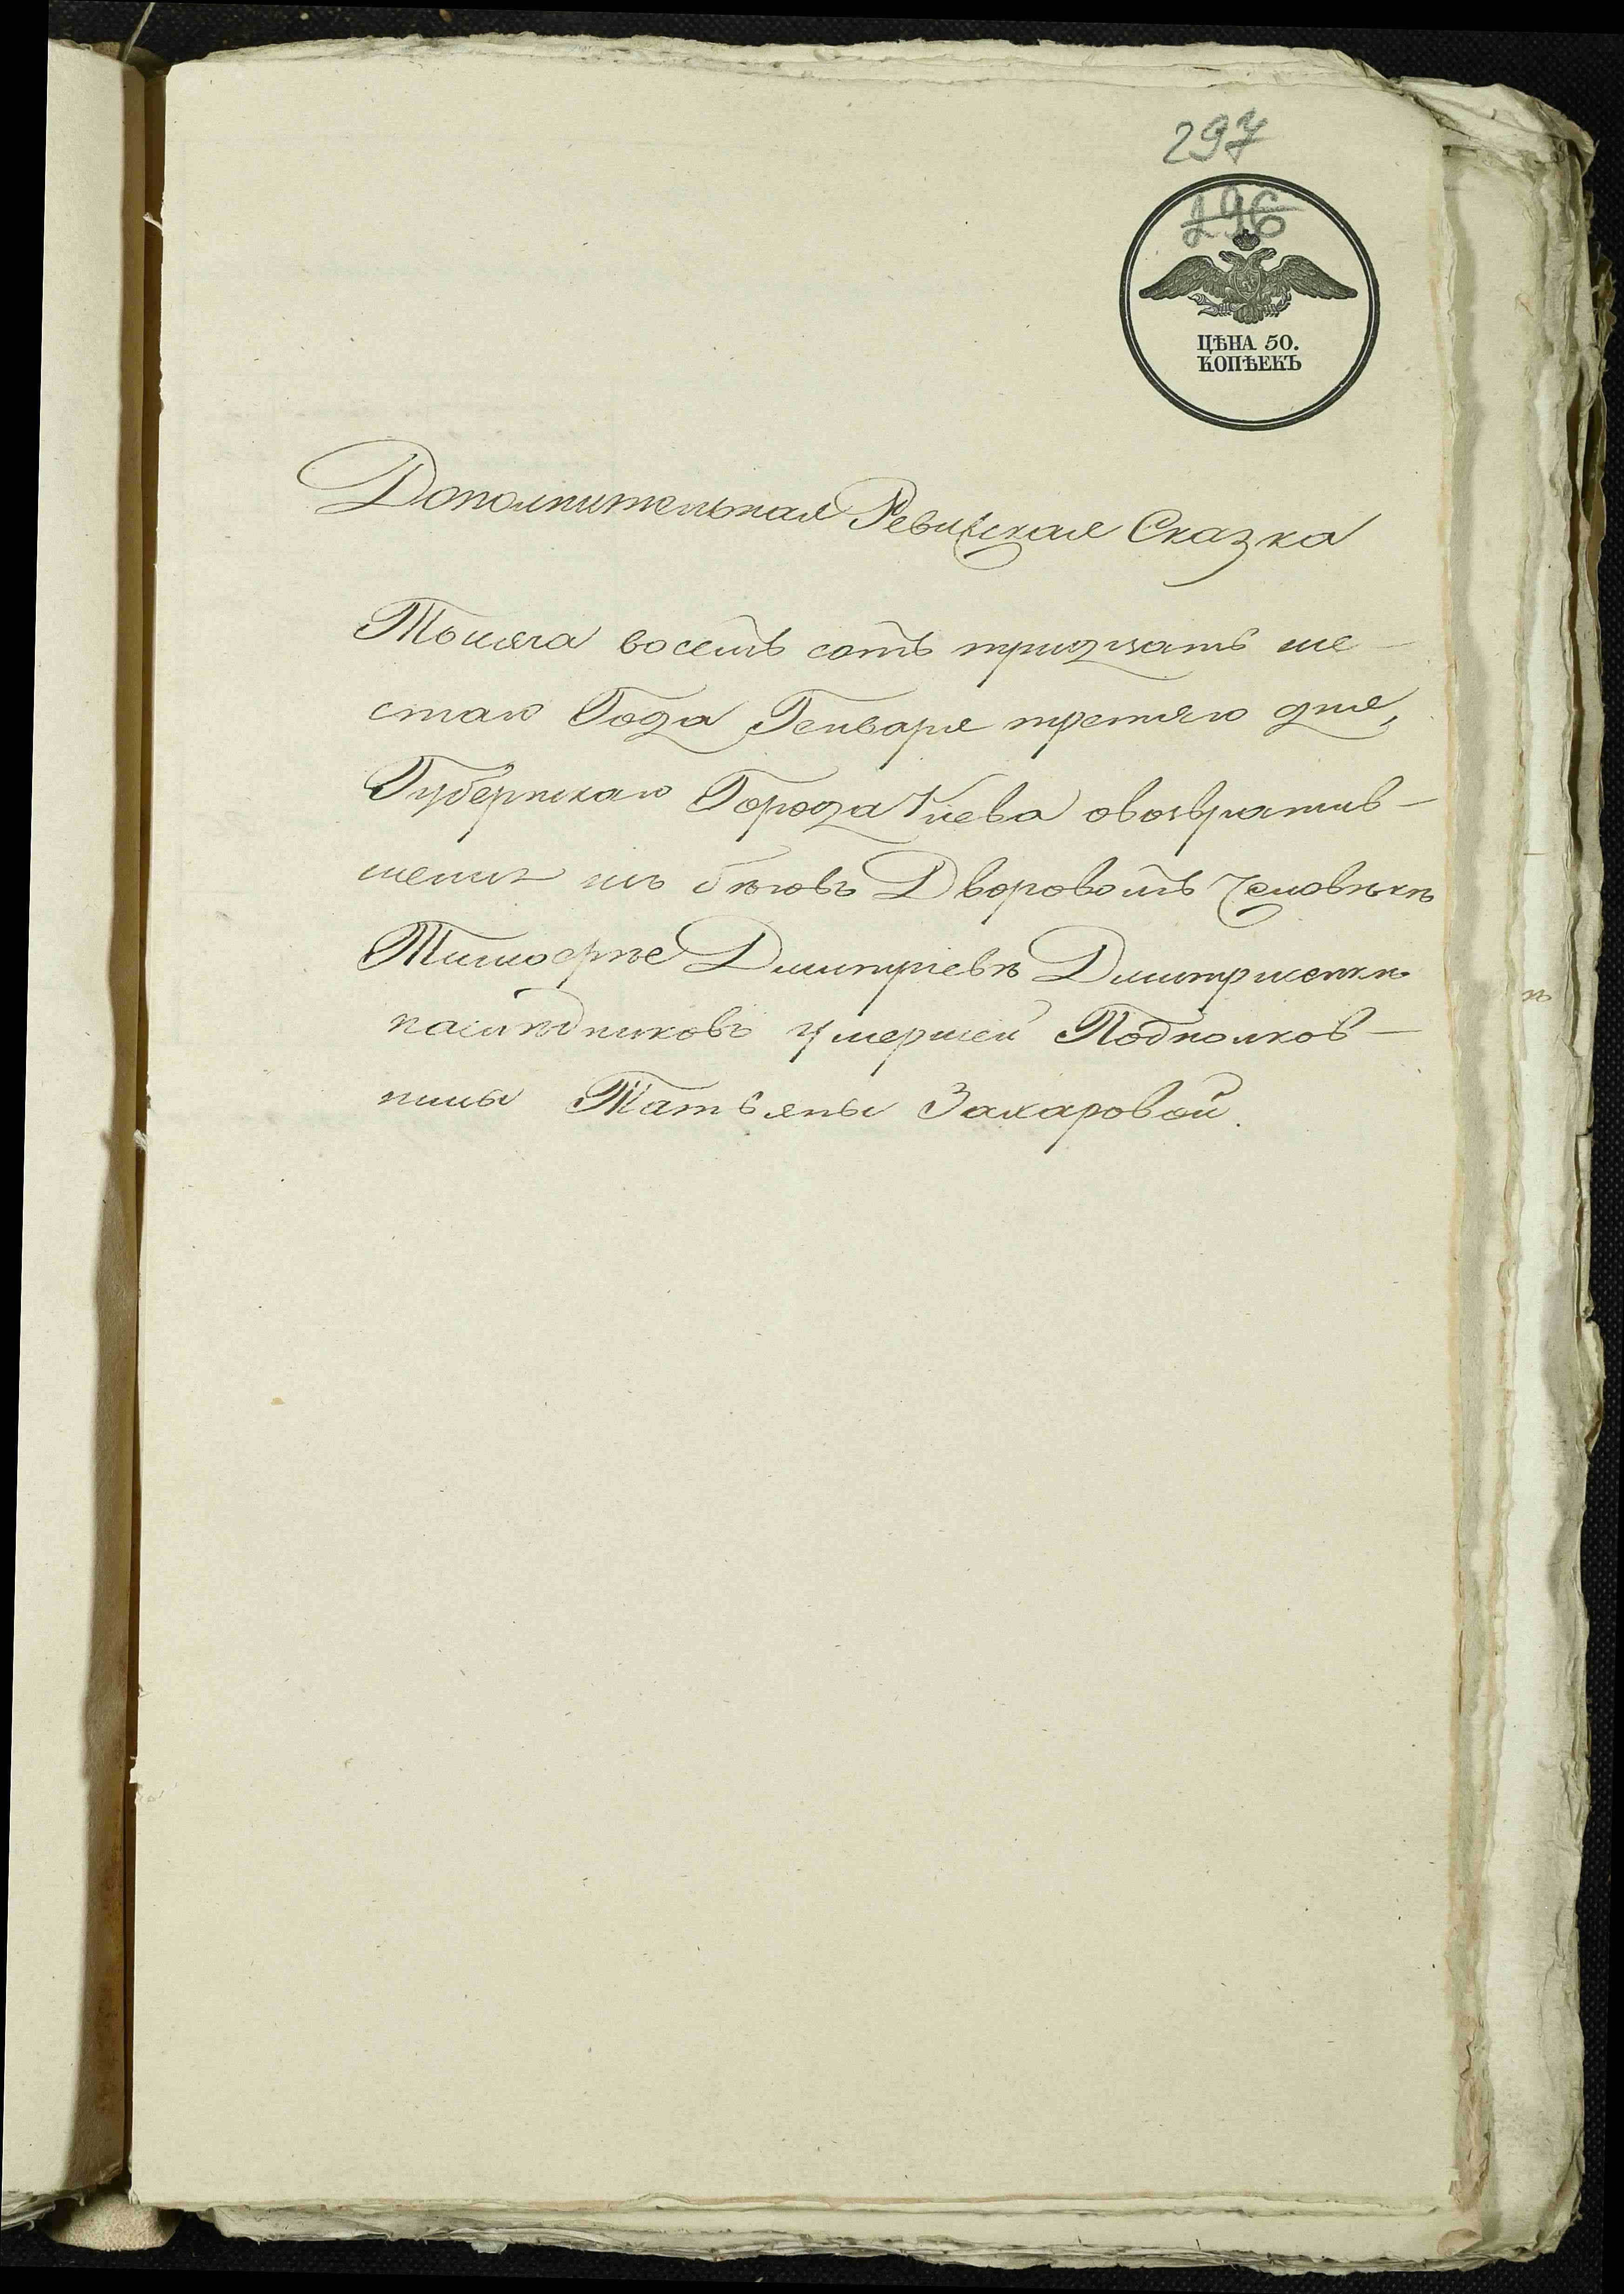 297
296
ЦѢНА 50.
КОПѢЕКЪ
Дополнительная Ревизская Сказка
Тысяча восемъ сотъ тридцать ше-
стаго Года Генваря третяго дня,
Губернскаго Города Кіева овозвратив-
шемся изъ бѣговъ Дворовомъ Человѣкѣ
Тимоѳѣе Дмитріевѣ Дмитріенкѣ
наслѣдниковъ умершей Подполков-
ницы Татьяны Захаровой.